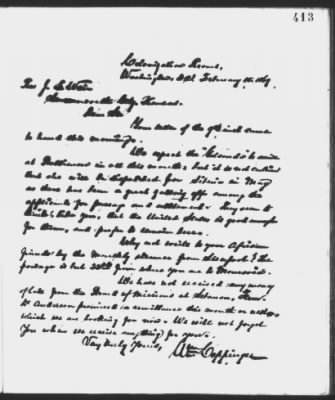 413
Colonization Rooms,
Washington, D.C. February
Rev. J.
Kansas.
Dear Sir
Your letter of the 9th inst. came
to hand this morning.
We expect the "Golconda" to arrive
at Baltimore in all this month: but it is not certain
that she will be dispatched for Liberia in May
as there has been a great falling off among the
applicants for passage and settlement. They seem to
think, like you, that the United States is good enough
for them, and prefer to remain here.
Why not write to your African
friends by the Monthly steamer from Liverpool? The
postage is but from where you are to Monrovia.
We have not received any money
of late from the Board of Missions at Lebanon, Tenn.
Dr Anderson promised a remittance this month or next,
which we are looking for now. We will not forget
you when we receive anything for yours.
Very truly yours,
Wm Coppinger